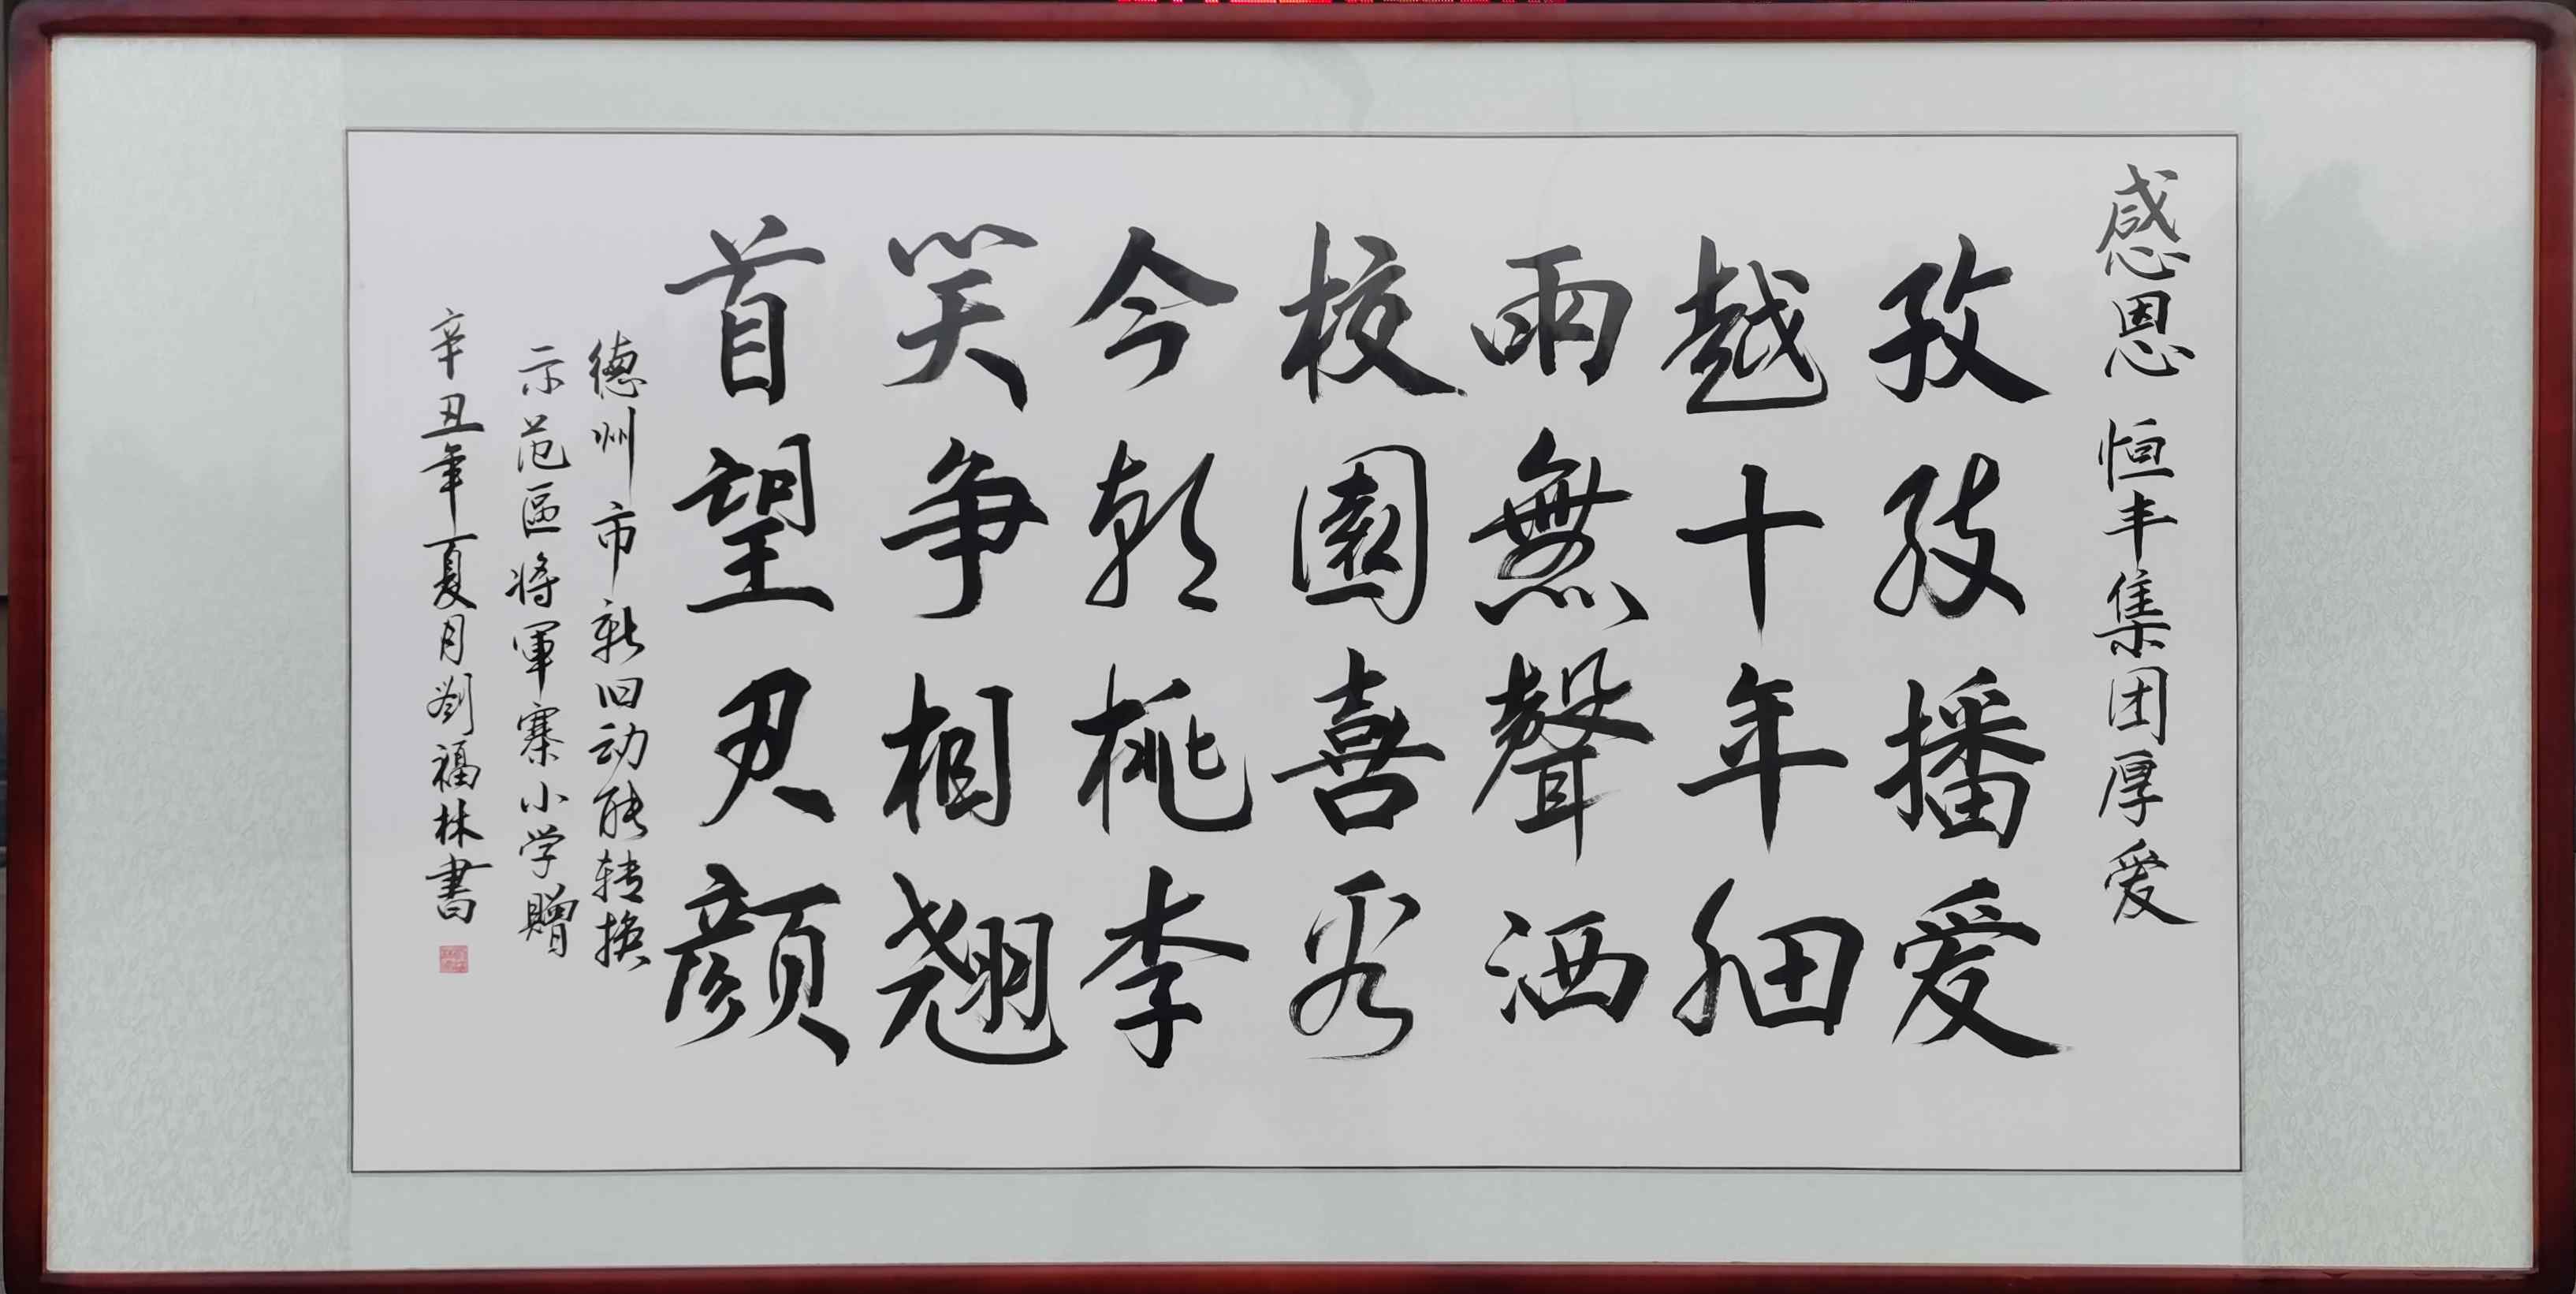 感恩 恒丰集团厚爱
孜孜播爱
越十年细
雨無聲洒
校園喜看
今朝桃李
笑争相翘
首望君顔
德州市新旧动能转换
示范區将軍寨小学贈
辛丑年夏月劉福林書